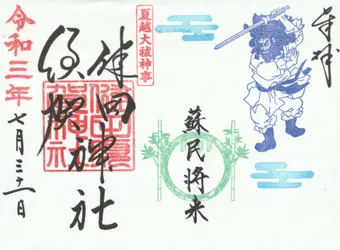 奉拝
蘇民将来
夏越大祓神事
健田神社
須賀神社
令和三年
七月三十一日